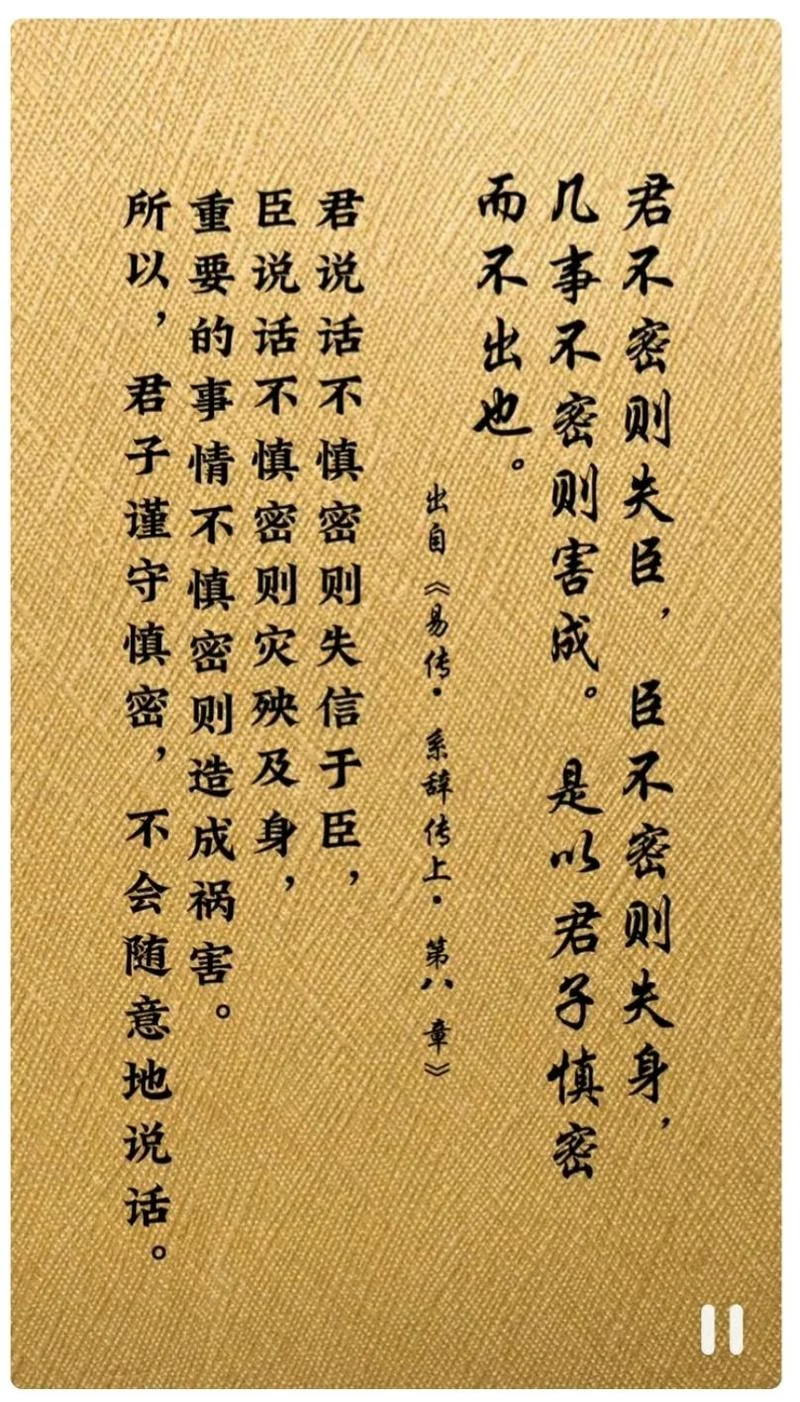 君不密则失臣，臣不密则失身，
几事不密则害成。是以君子慎密
而不出也。
出自《易传·系辞传上·第八章》
君说话不慎密则失信于臣，
臣说话不慎密则灾殃及身，
重要的事情不慎密则造成祸害。
所以，君子谨守慎密，不会随意地说话。